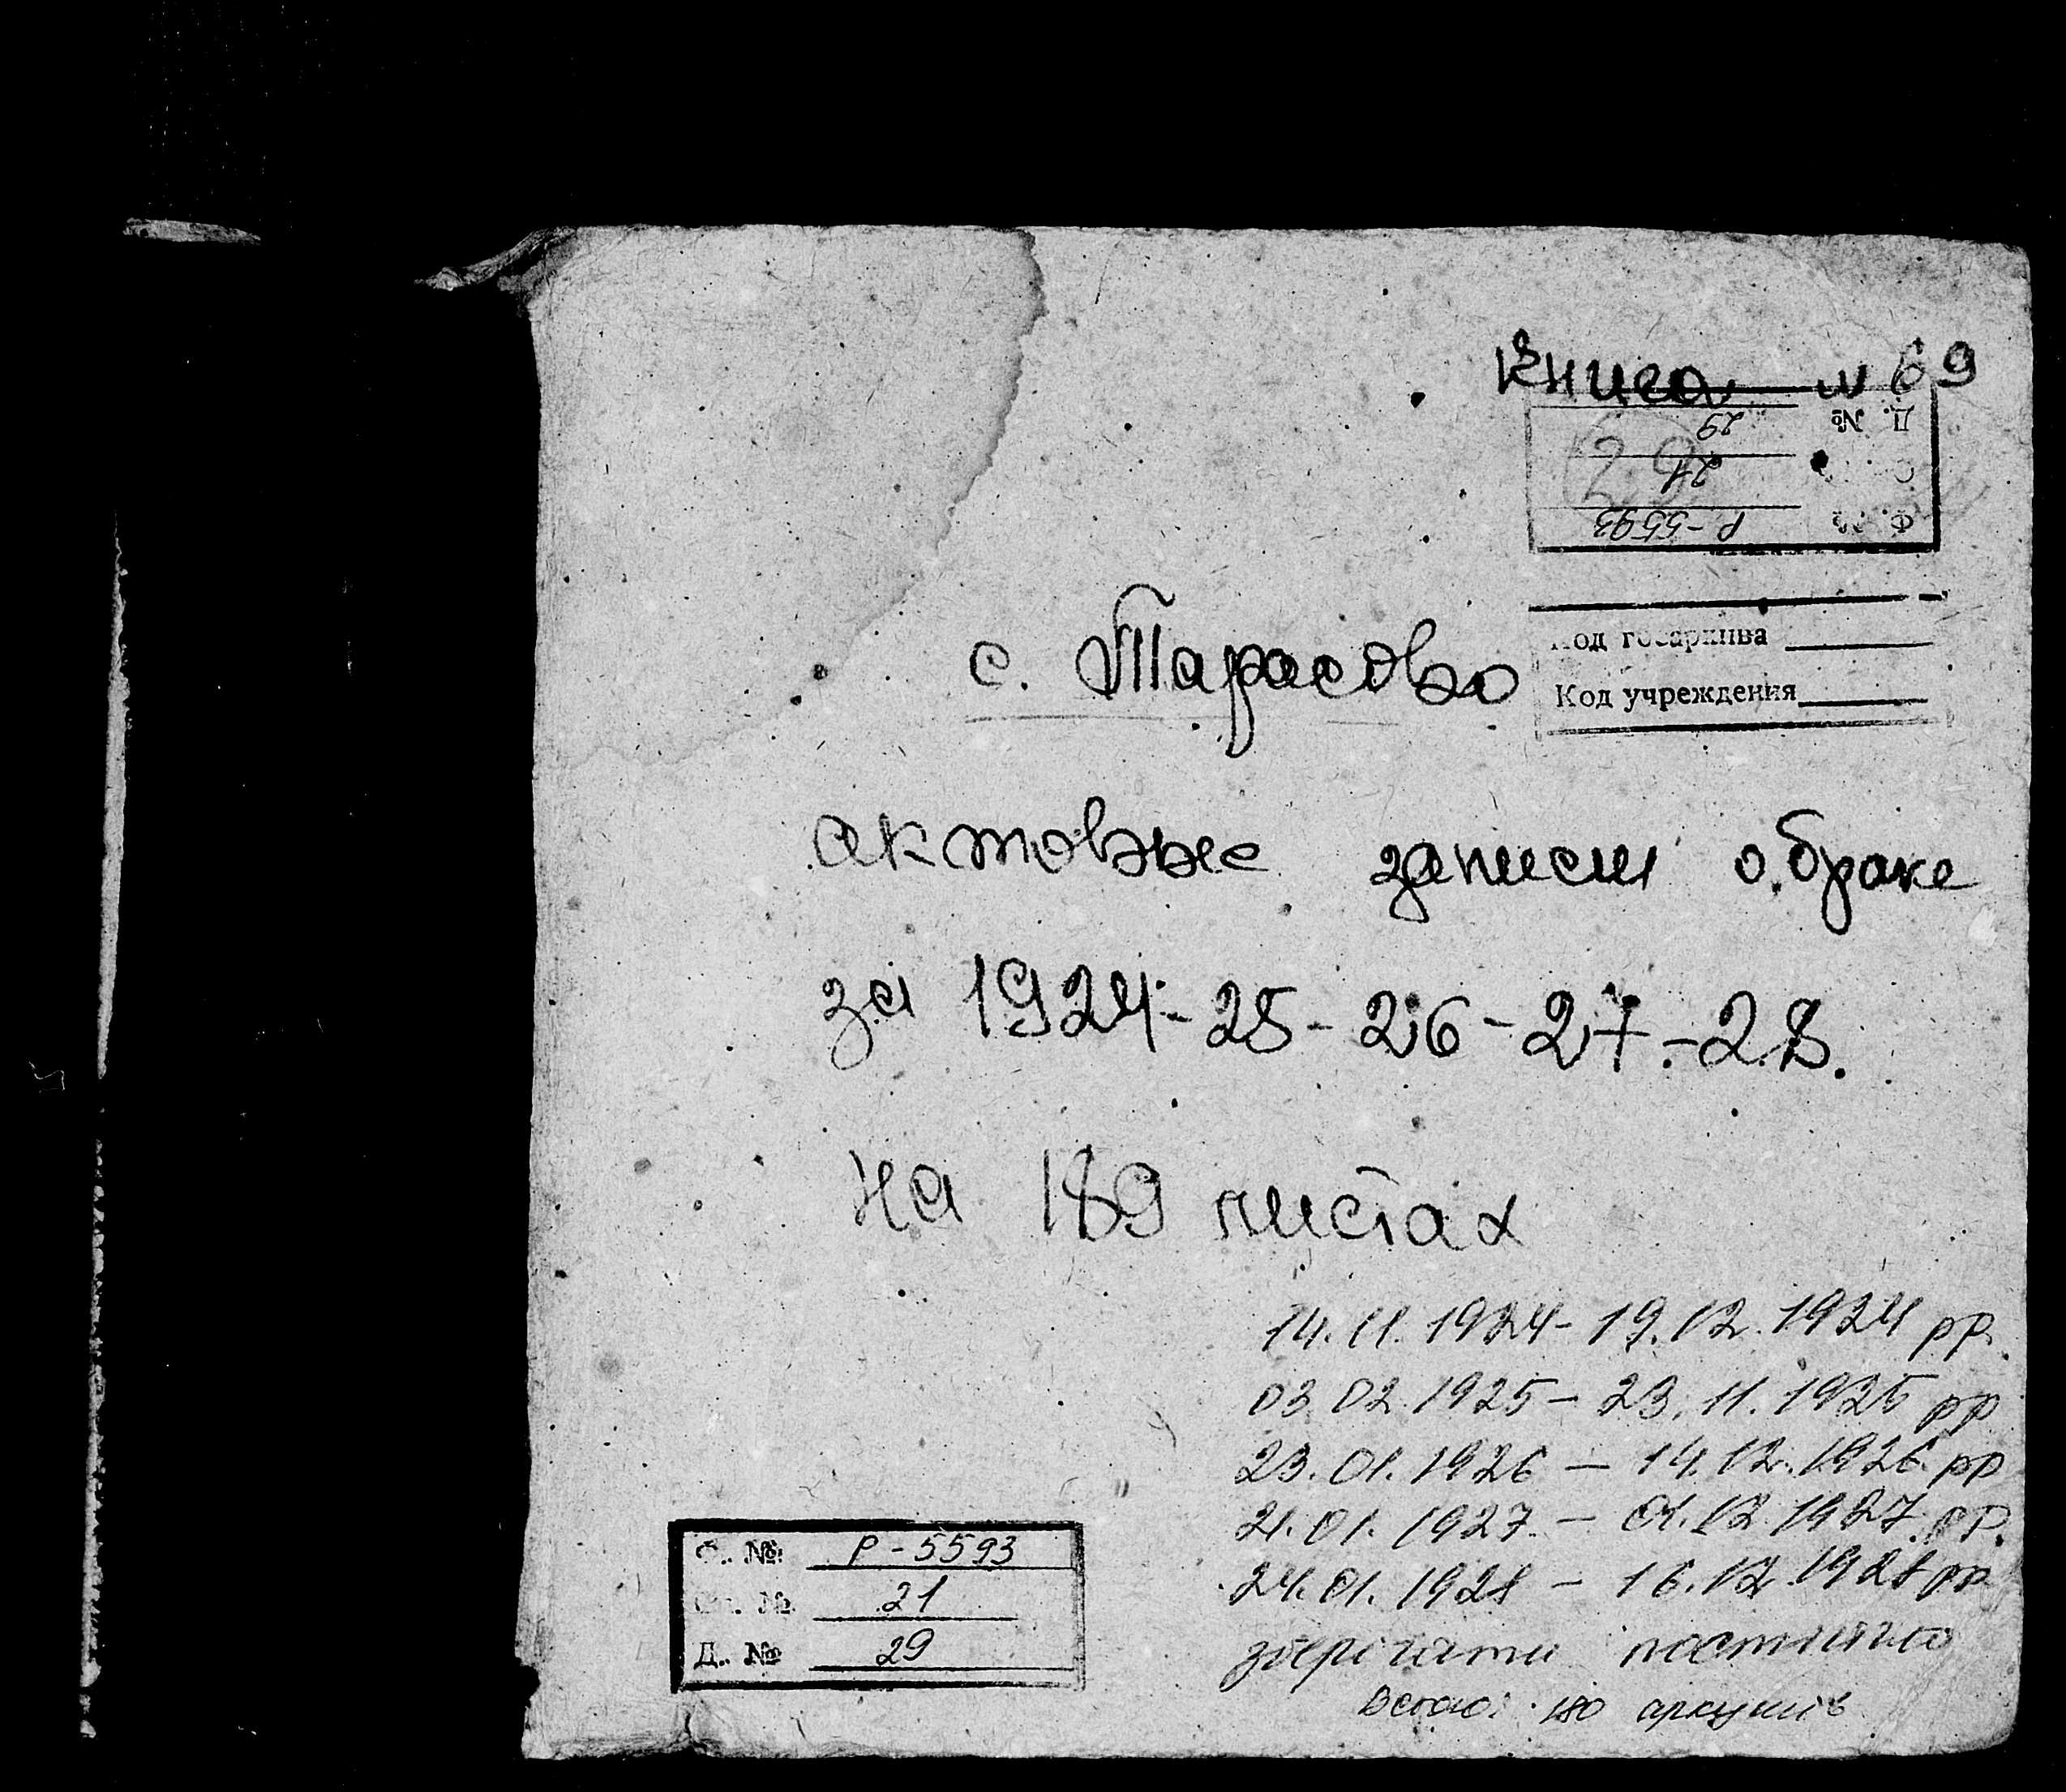 Книга № 69
Д. № 29
21
Ф. № Р-5593
Код госархива
с. Тарасовка
Код учреждения
актовые записи о браке
за 1924-25-26-27-28.
На 189 листах
14.11.1924-19.12.1924 рр.
03.02.1925-23.11.1925 рр
23.01.1926-14.12.1926 рр
21.01.1927-01.12.1927 рр.
24.01.1928-16.12.1928 рр
зберігати постійно
Всього: 180 аркушів
Ф. № Р-5593
Оп. № 21
Д. № 29